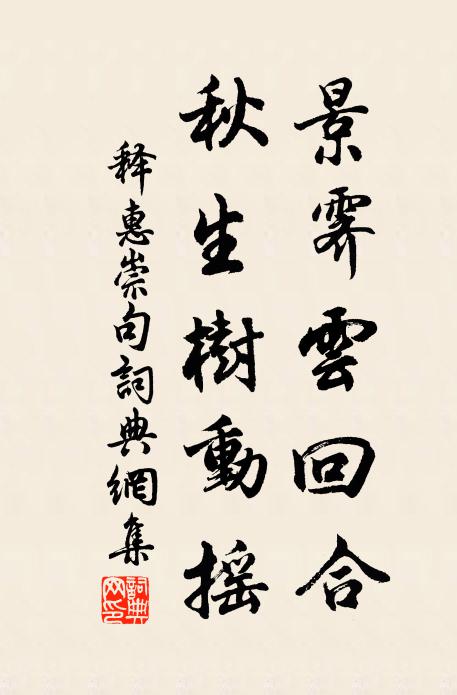 景霽雲回合
秋生樹動摇
释惠崇句詞典網集
詞典網印